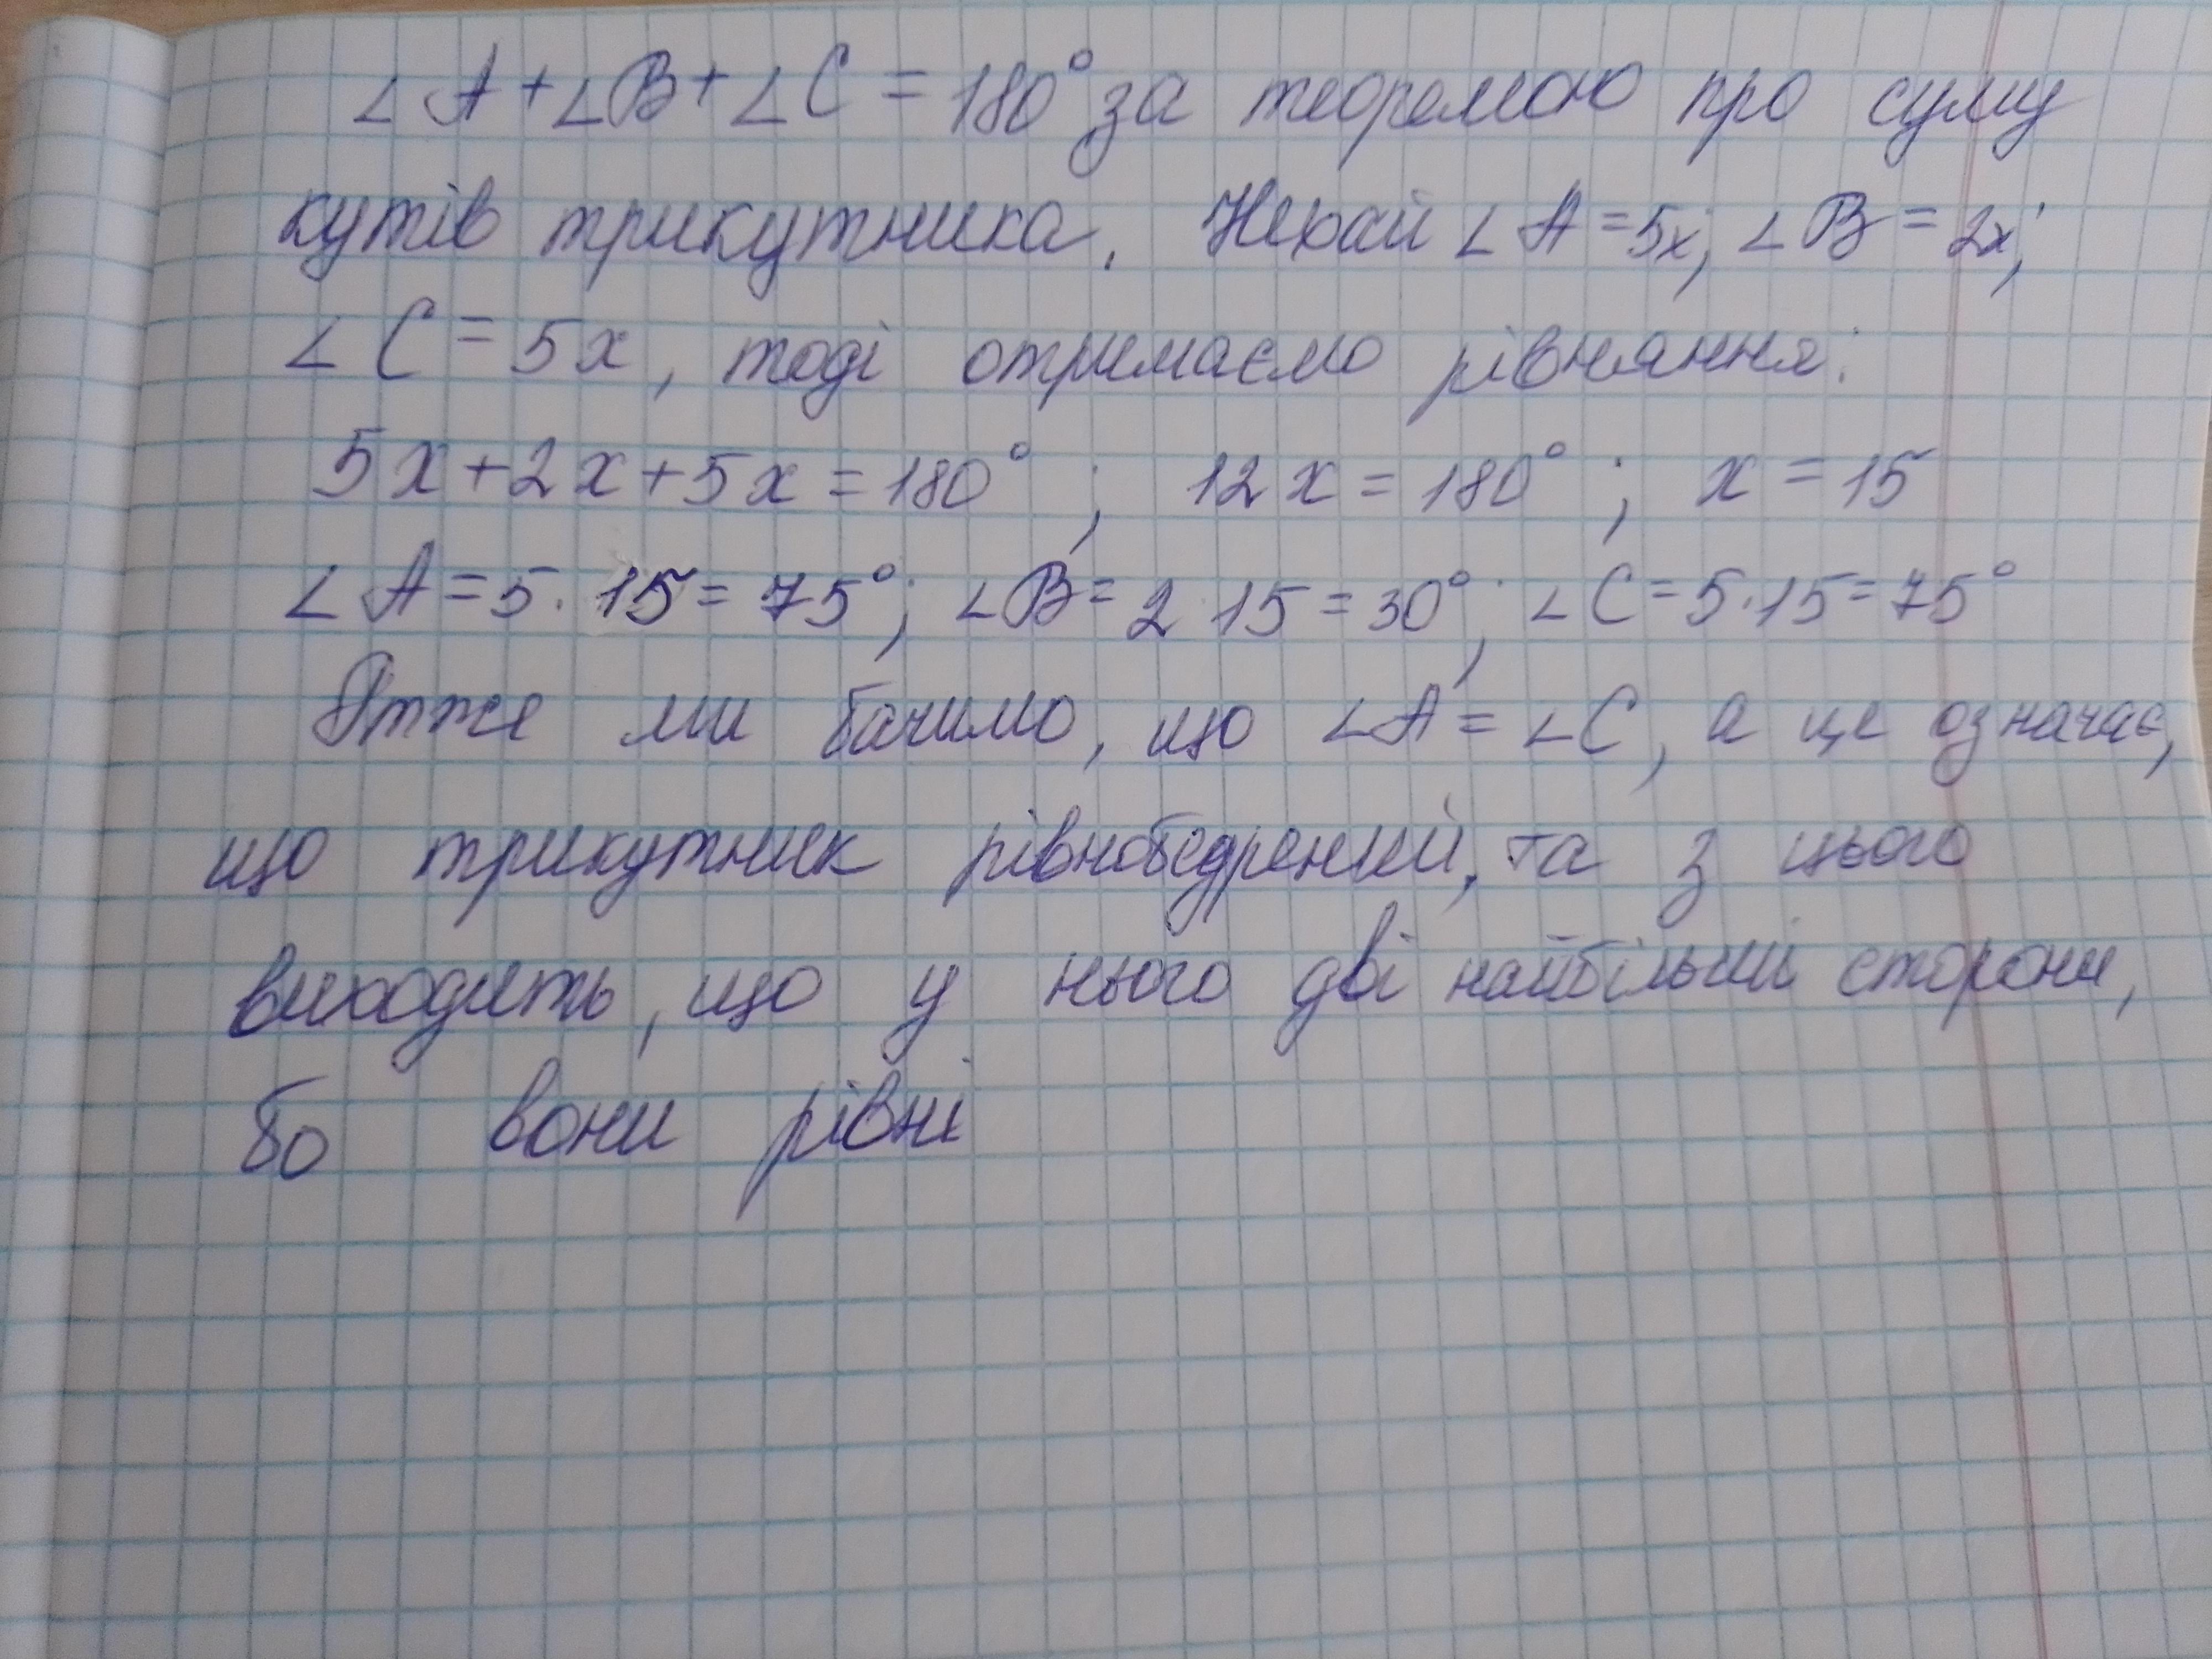 ∠A+∠B+∠C=180° за теоремою про суму
кутів трикутника. Нехай ∠A=5x; ∠B=2x;
∠C=5x, тоді отримаємо рівняння:
5x+2x+5x=180°; 12x=180°; x=15
∠A=5·15=75°; ∠B=2·15=30°; ∠C=5·15=75°
Отже ми бачимо, що ∠A=∠C, а це означає,
що трикутник рівнобедрений, та з цього
виходить, що у нього дві найбільші сторони,
бо вони рівні